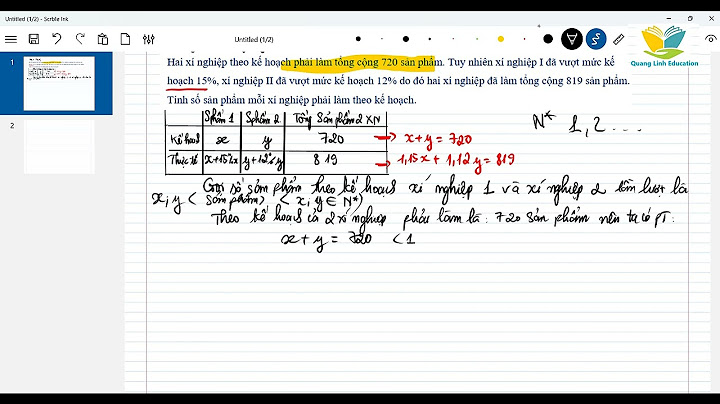 Untitled (1/2) - Scrble Ink
Untitled (1/2)
Quang Linh Education
1
2
Hai xí nghiệp theo kế hoạch phải làm tổng cộng 720 sản phẩm. Tuy nhiên xí nghiệp I đã vượt mức kế
hoạch 15%, xí nghiệp II đã vượt mức kế hoạch 12% do đó hai xí nghiệp đã làm tổng cộng 819 sản phẩm.
Tính số sản phẩm mỗi xí nghiệp phải làm theo kế hoạch.
Sphẩm 1 Sphẩm 2 Tổng sản phẩm 2 XN
N* 1, 2 ...
Kế hoạch x y 720 → x + y = 720
Thực tế x+15%x y+12%y 819 → 1,15x + 1,12y = 819
Gọi số sản phẩm theo kế hoạch xí nghiệp 1 và xí nghiệp 2 lần lượt là
x; y < sản phẩm) < x; y ∈ N*)
Theo kế hoạch cả 2 xí nghiệp phải làm là: 720 sản phẩm nên ta có PT:
x + y = 720 < 1